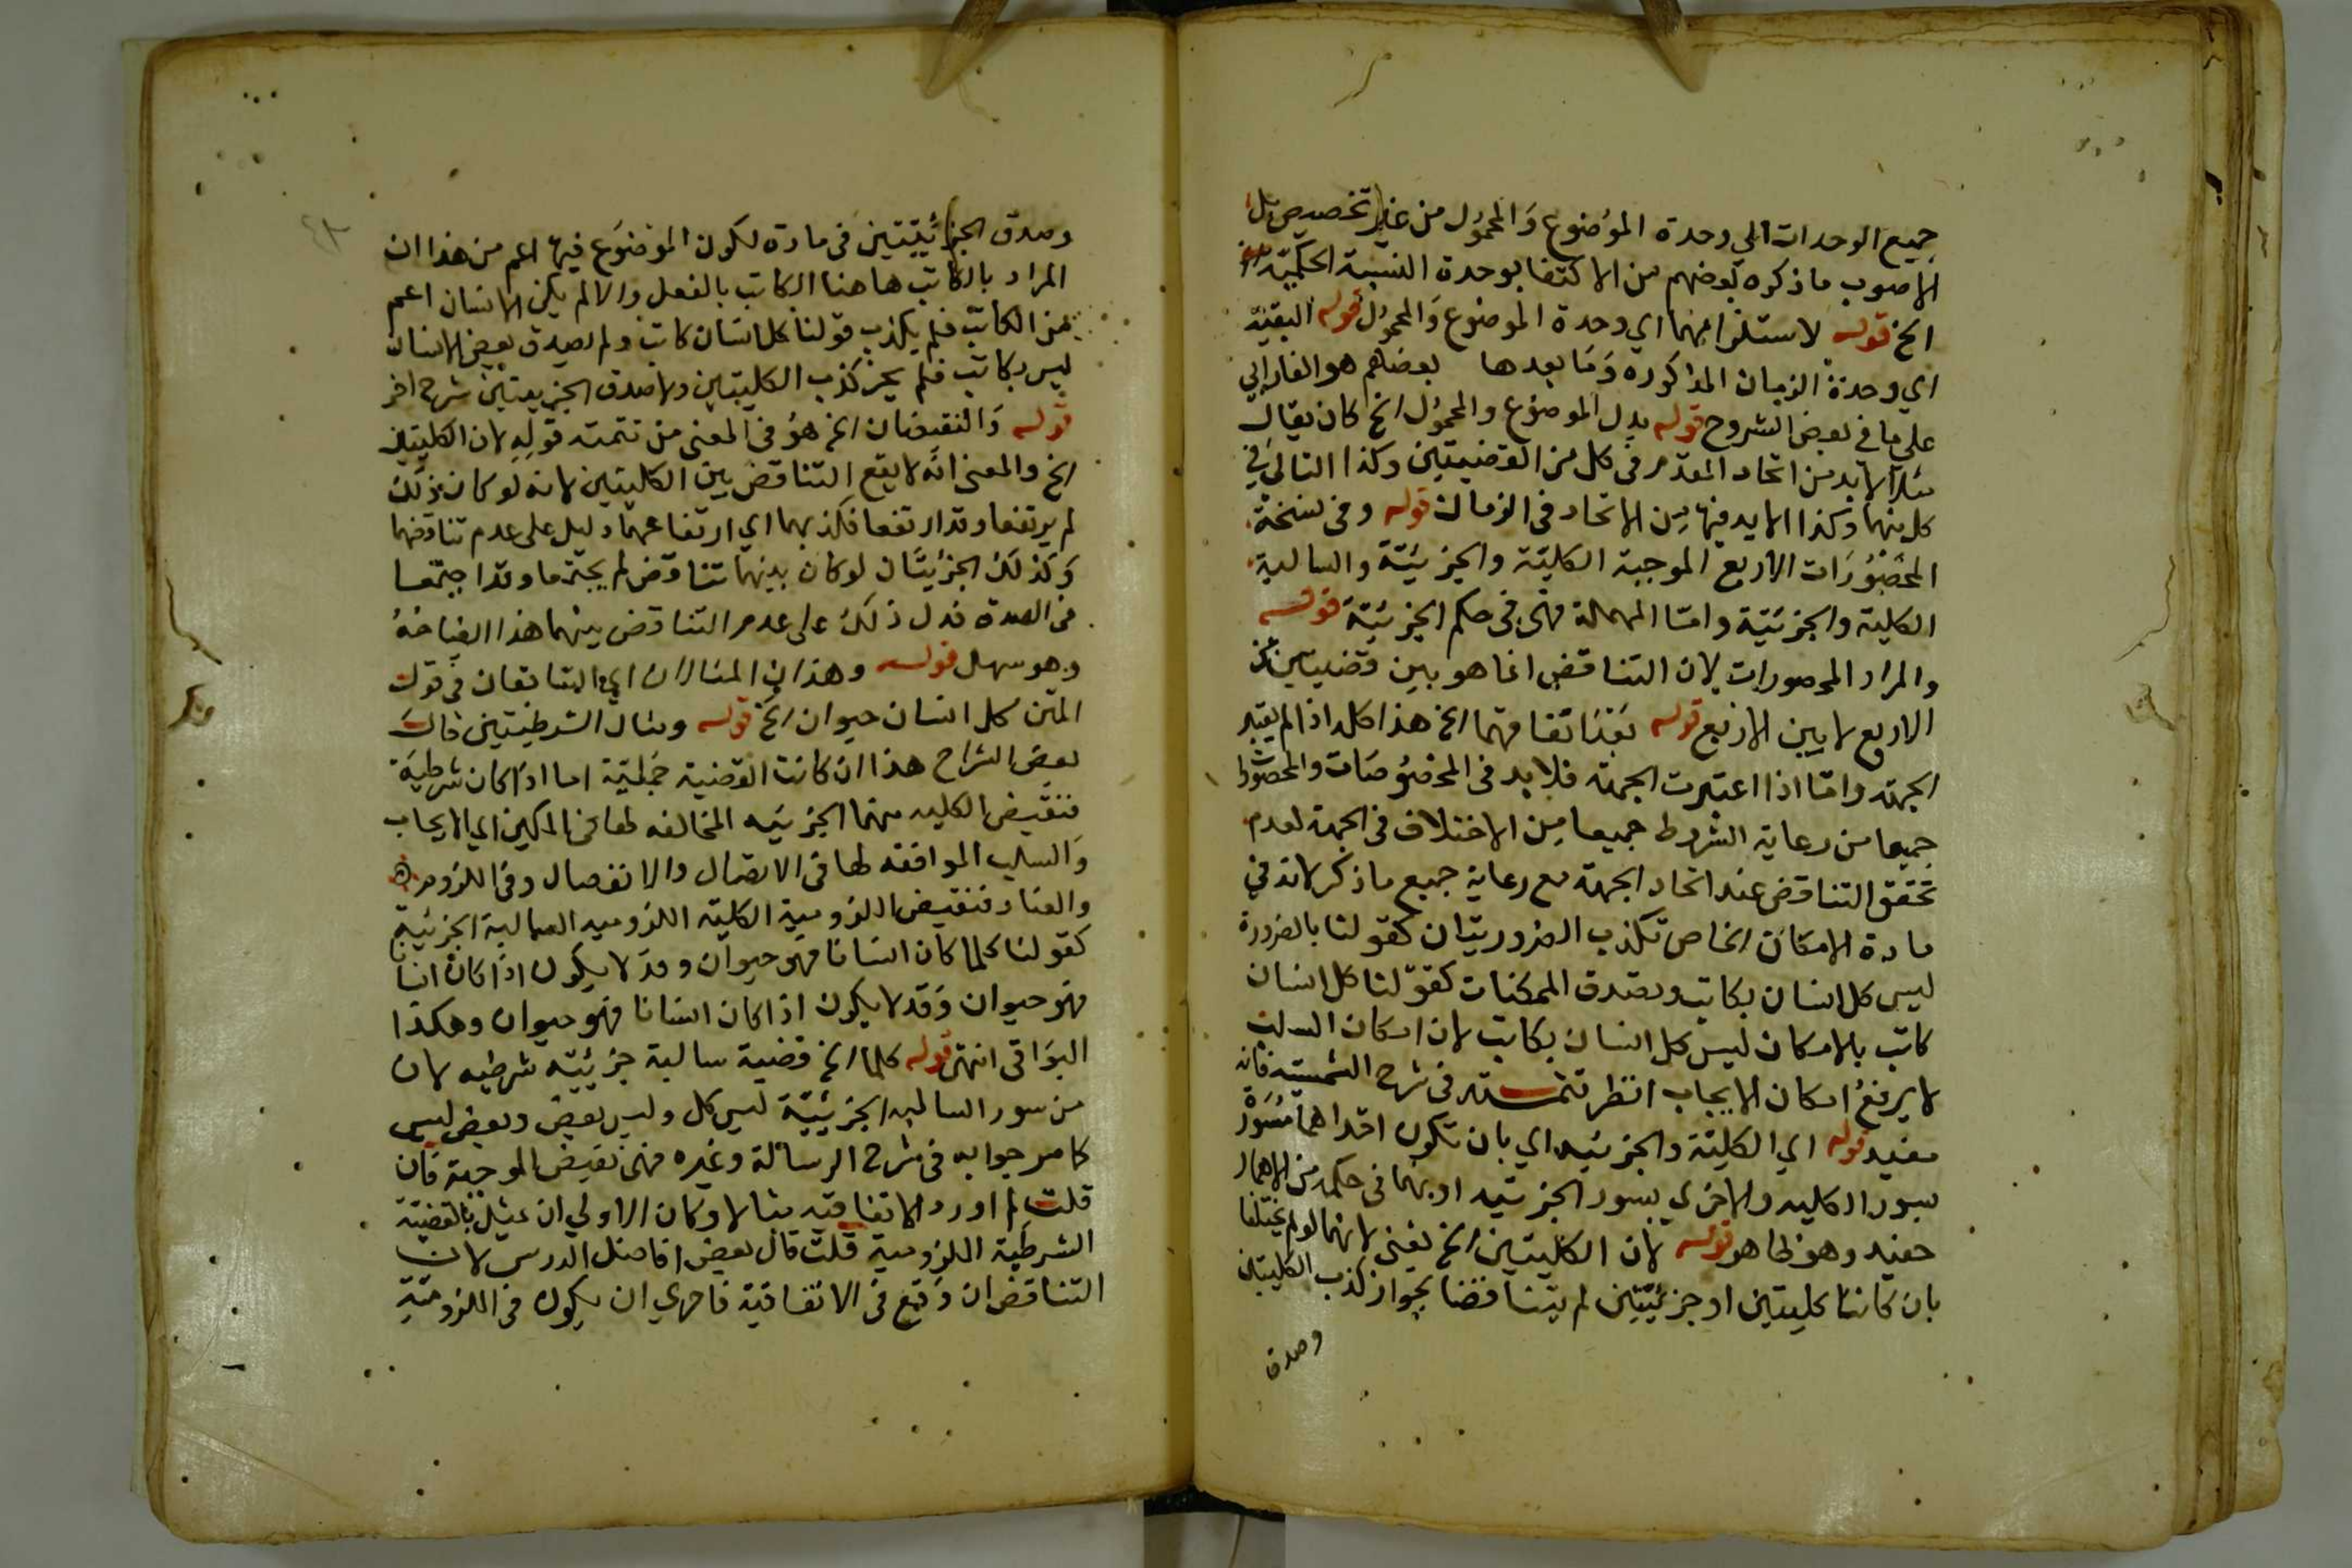 جميع الوحدات الي وحدة الموضوع والمحمول من غير تخصيص بل
الاصوب ما ذكره بعضهم من الاكتفا بوحدة النسبة الحكمية
الخ قوله لاستلزامهما اي وحدة الموضوع والمحمول قوله البقية
اي وحدة الزمان المذكوره وما بعدها بعضهم هو الفارابي
علي ما في بعض الشروح قوله بدل الموضوع والمحمول الخ كان يقال
مثلا لا بد من اتحاد المقدم في كل من القضيتين وكذا التالي في
كل منهما وكذا لا بد فيها من الاتحاد في الزمان قوله وفي نسخة
المحصورات الاربع الموجبة الكلية والجزئية والسالبة
الكلية والجزئية واما المهملة فهي في حكم الجزئية قوله
والمراد المحصورات لان التناقض انما هو بين قضيتين من
الاربع لا بين الاربع قوله بعد اتفاقهما الخ هذا كله اذا لم يعتبر
الجهة واما اذا اعتبرت الجهة فلا بد في المخصوصات والمحصورا
جميعا من رعاية الشروط جميعا من الاختلاف في الجهة لعدم
تحقق التناقض عند اتحاد الجهة مع رعاية جميع ما ذكر لانه في
مادة الامكان الخاص تكذب الضروريتان كقولنا بالضرورة
ليس كل انسان بكاتب وتصدق الممكنات كقولنا كل انسان
كاتب بالامكان ليس كل انسان بكاتب لان امكان السلب
لا يرفع امكان الايجاب انظر تتمته في شرح الشمسية فانه
مفيد قوله اي الكلية والجزئيه اي بان تكون احداهما مسورة
بسور الكليه والاخري بسور الجزئيه او بما في حكمه من الاهمال
وهو ظاهر قوله لان الكليتين الخ يعني لانهما لو لم يختلفا
بان كانتا كليتين او جزئيتين لم يتناقضا لجواز كذب الكليتين
وصدق
وصدق الجزئيتين في مادة لكون الموضوع فيها اعم من هذا ان
المراد بالكاتب هاهنا الكاتب بالفعل والا لم يكن الانسان اعم
من الكاتب فلم يكذب قولنا كل انسان كاتب ولم يصدق بعض الانسان
ليس بكاتب فلم يجز كذب الكليتين ولا صدق الجزيعتين شرح اخر
قوله والنقيضان الخ هو في المعني من تتمت قوله لان الكليتين
الخ والمعنى انه لا يقع التناقض بين الكليتين لانه لو كان كذلك
لم يرتفعا وقد ارتفعا فكذبهما اي ارتفاعهما دليل على عدم تناقضهما
وكذلك الجزئيتان لو كان بينهما تناقض لم يجتمعا وقد اجتمعا
في الصدق فدل ذلك على عدم التناقض بينهما هذا ايضاحه
وهو سهل قوله وهذان المثالان اي السابقان في قول
المتن كل انسان حيوان الخ قوله ومثال الشرطيتين قال
بعض الشراح هذا ان كانت القضية حملية اما اذا كان شرطية
فنقيض الكليه منهما الجزئيه المخالفه لها في الكيف اي الايجاب
والسلب الموافقه لها في الاتصال والانفصال وفي اللزوم
والعناد فنقيض اللزومية الكلية اللزوميه السالبة الجزئية
كقولنا كلما كان انسانا فهو حيوان وقد لا يكون اذا كان انسانا
فهو حيوان وقد لا يكون اذا كان انسانا فهو حيوان وهكذا
البواقي انتهى قوله كلما الخ قضية سالبة جزئيه شرطيه لان
من سور السالبه الجزئية ليس كل وليس بعض وبعض ليس
كما صرحوا به في شرح الرسالة وغيره فهي نقيض الموجبة فان
قلت لم اورد الاتفاقيه مثالا وكان الاولي ان يمثل بالقضية
الشرطية اللزومية قلت قال بعض افاضل الدرس لان
التناقض ان وقع في الاتفاقية فاحري ان يكون في اللزومية